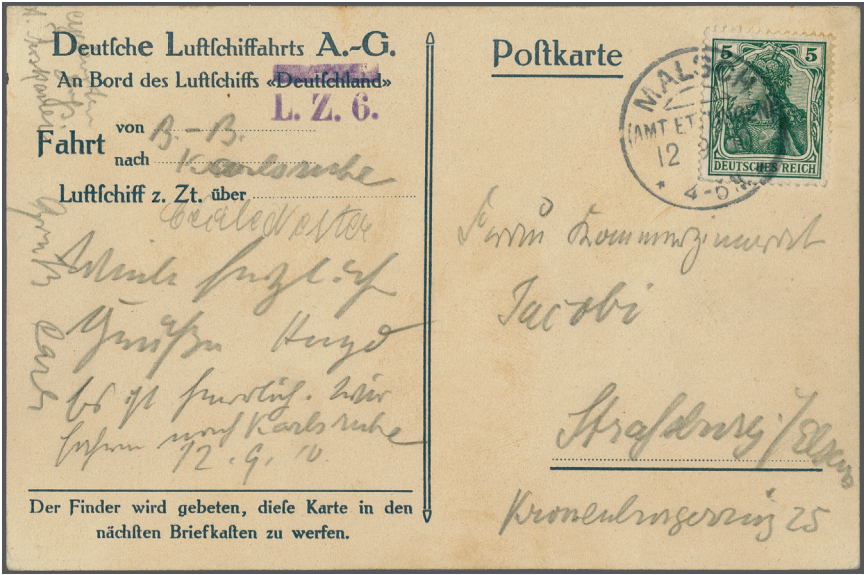 Deutsche Luftschiffahrts A.-G.
An Bord des Luftschiffs «Deutschland»
L. Z. 6.
Fahrt von B.-B.
nach Karlsruhe
Luftschiff z. Zt. über
Viele herzlich
Grüße Hugo
Es ist herrlich. Wir
fahren nach Karlsruhe
12. 9. 10.
Der Finder wird gebeten, diese Karte in den
nächsten Briefkasten zu werfen.
Postkarte
5 5
DEUTSCHES REICH
MALSCH
(AMT ETTLINGEN)
12 9
4-5 N
Herrn Kommerzienrat
Jacobi
Straßburg i/Elsass
Kronenburgerring 25